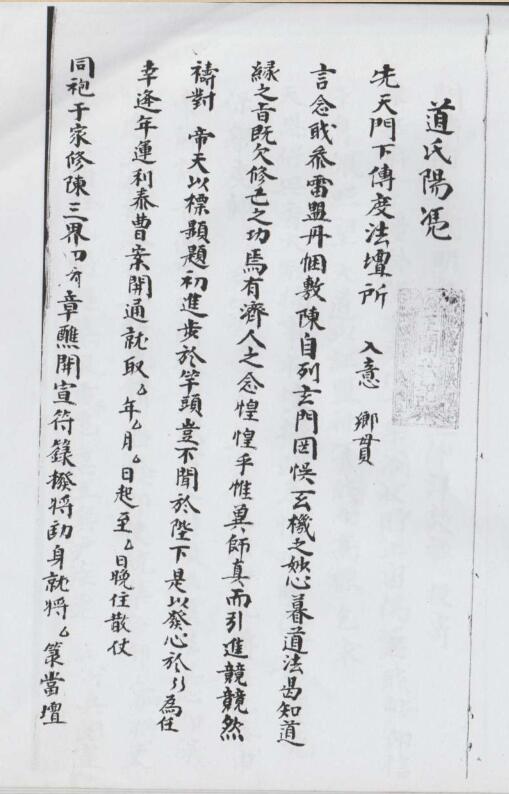 道氏陽憑
先天門下傳度法壇所　入意　鄉貫
言念戝叅雷盟丹悃敷陳自列玄門罔悞玄機之妙心暮道法曷知道
緣之旨既欠修己之功焉有濟人之念惶惶乎惟兾師真而引進競競然
禱對　帝天以標顯題初進步於竿頭豈不聞於陛下是以發心於為任
幸逢年運利泰曹案開通就取厶年厶月厶日起至厶日晚住散仗
同袍于家修陳三界章醮開宣符籙撥將助身就將厶籙當壇